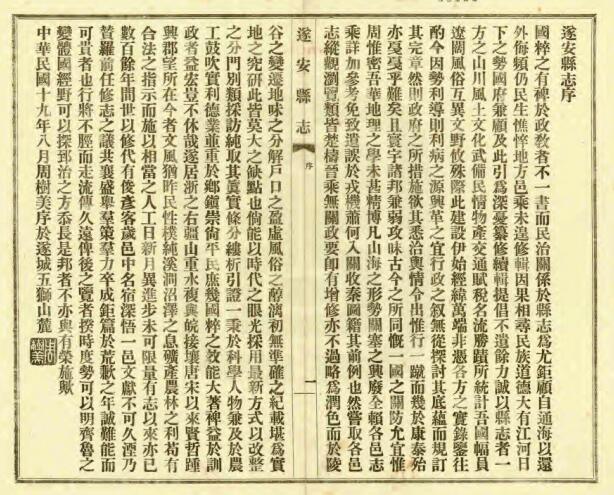 遂安縣志序
國粹之有裨於政敎者不一書而民治關係於縣志爲尤鉅顧自通海以還
外侮頻仍民生憔悴地方邑乘未遑修輯因果相尋民族道德大有江河日
下之勢國府兼顧及此引爲深憂纂修續輯提倡不遺餘力誠以縣志者一
方之山川風土文化武備民情物產交通賦稅名流勝蹟所統計吾國幅員
遼闊風俗互異文野攸殊際此建設伊始經緯萬端非憑各方之實錄鑒往
酌今因勢利導則利病之源興革之宜行政之叙無從探討其底蘊而規訂
其完章然則政府之所措施欲其悉洽輿情令出惟行一蹴而幾於康泰殆
亦戞戞乎難矣且寰宇諸邦兼弱攻昧古今之所同慨一國之關防尤宜惟
周惟密吾華地理之學未甚精博凡山海之形勢關塞之興廢全賴各邑志
乘詳加參考免致遣誤於戎機蕭何入關收秦圖籍其前例也然嘗取各邑
志縱觀瀏覽類皆楚檮晉乘無關政要卽有增修亦不過略爲潤色而於陵
遂安縣志
序
一
谷之變遷地味之分解戶口之盈虛風俗之醇漓初無準確之紀載堪爲實
地之究硏此皆莫大之缺點也倘能以時代之眼光採用最新方式以改整
之分門別類採訪純取其眞實條分縷析引證一秉於科學人物兼及於農
工鼓吹實利德業並重於鄉鎭崇尙平民庶幾國粹之效能大著裨益於訓
政者益宏豈不休哉遂居浙之右疆山重水複與皖接壤唐宋以來賢哲踵
興郡望所在今者文風猶昨民性樸純溪澗沼澤之息礦產農林之利苟有
合法之指示而施以相當之人工日新月異進步未可限量有志以來亦已
數百餘年間世以修代有俊彥客歲邑中名宿深悟一邑文獻不可久湮乃
贊羅前任修志之議共襄盛舉羣策羣力卒成鉅篇於荒歉之年誠難能而
可貴者也行將不脛而走流傳久遠俾後之覽者揆時度勢可以明齊魯之
變體國經野可以探到治之方忝長是邦者不亦與有榮施歟
中華民國十九年八月周樹美序於遂城五獅山麓